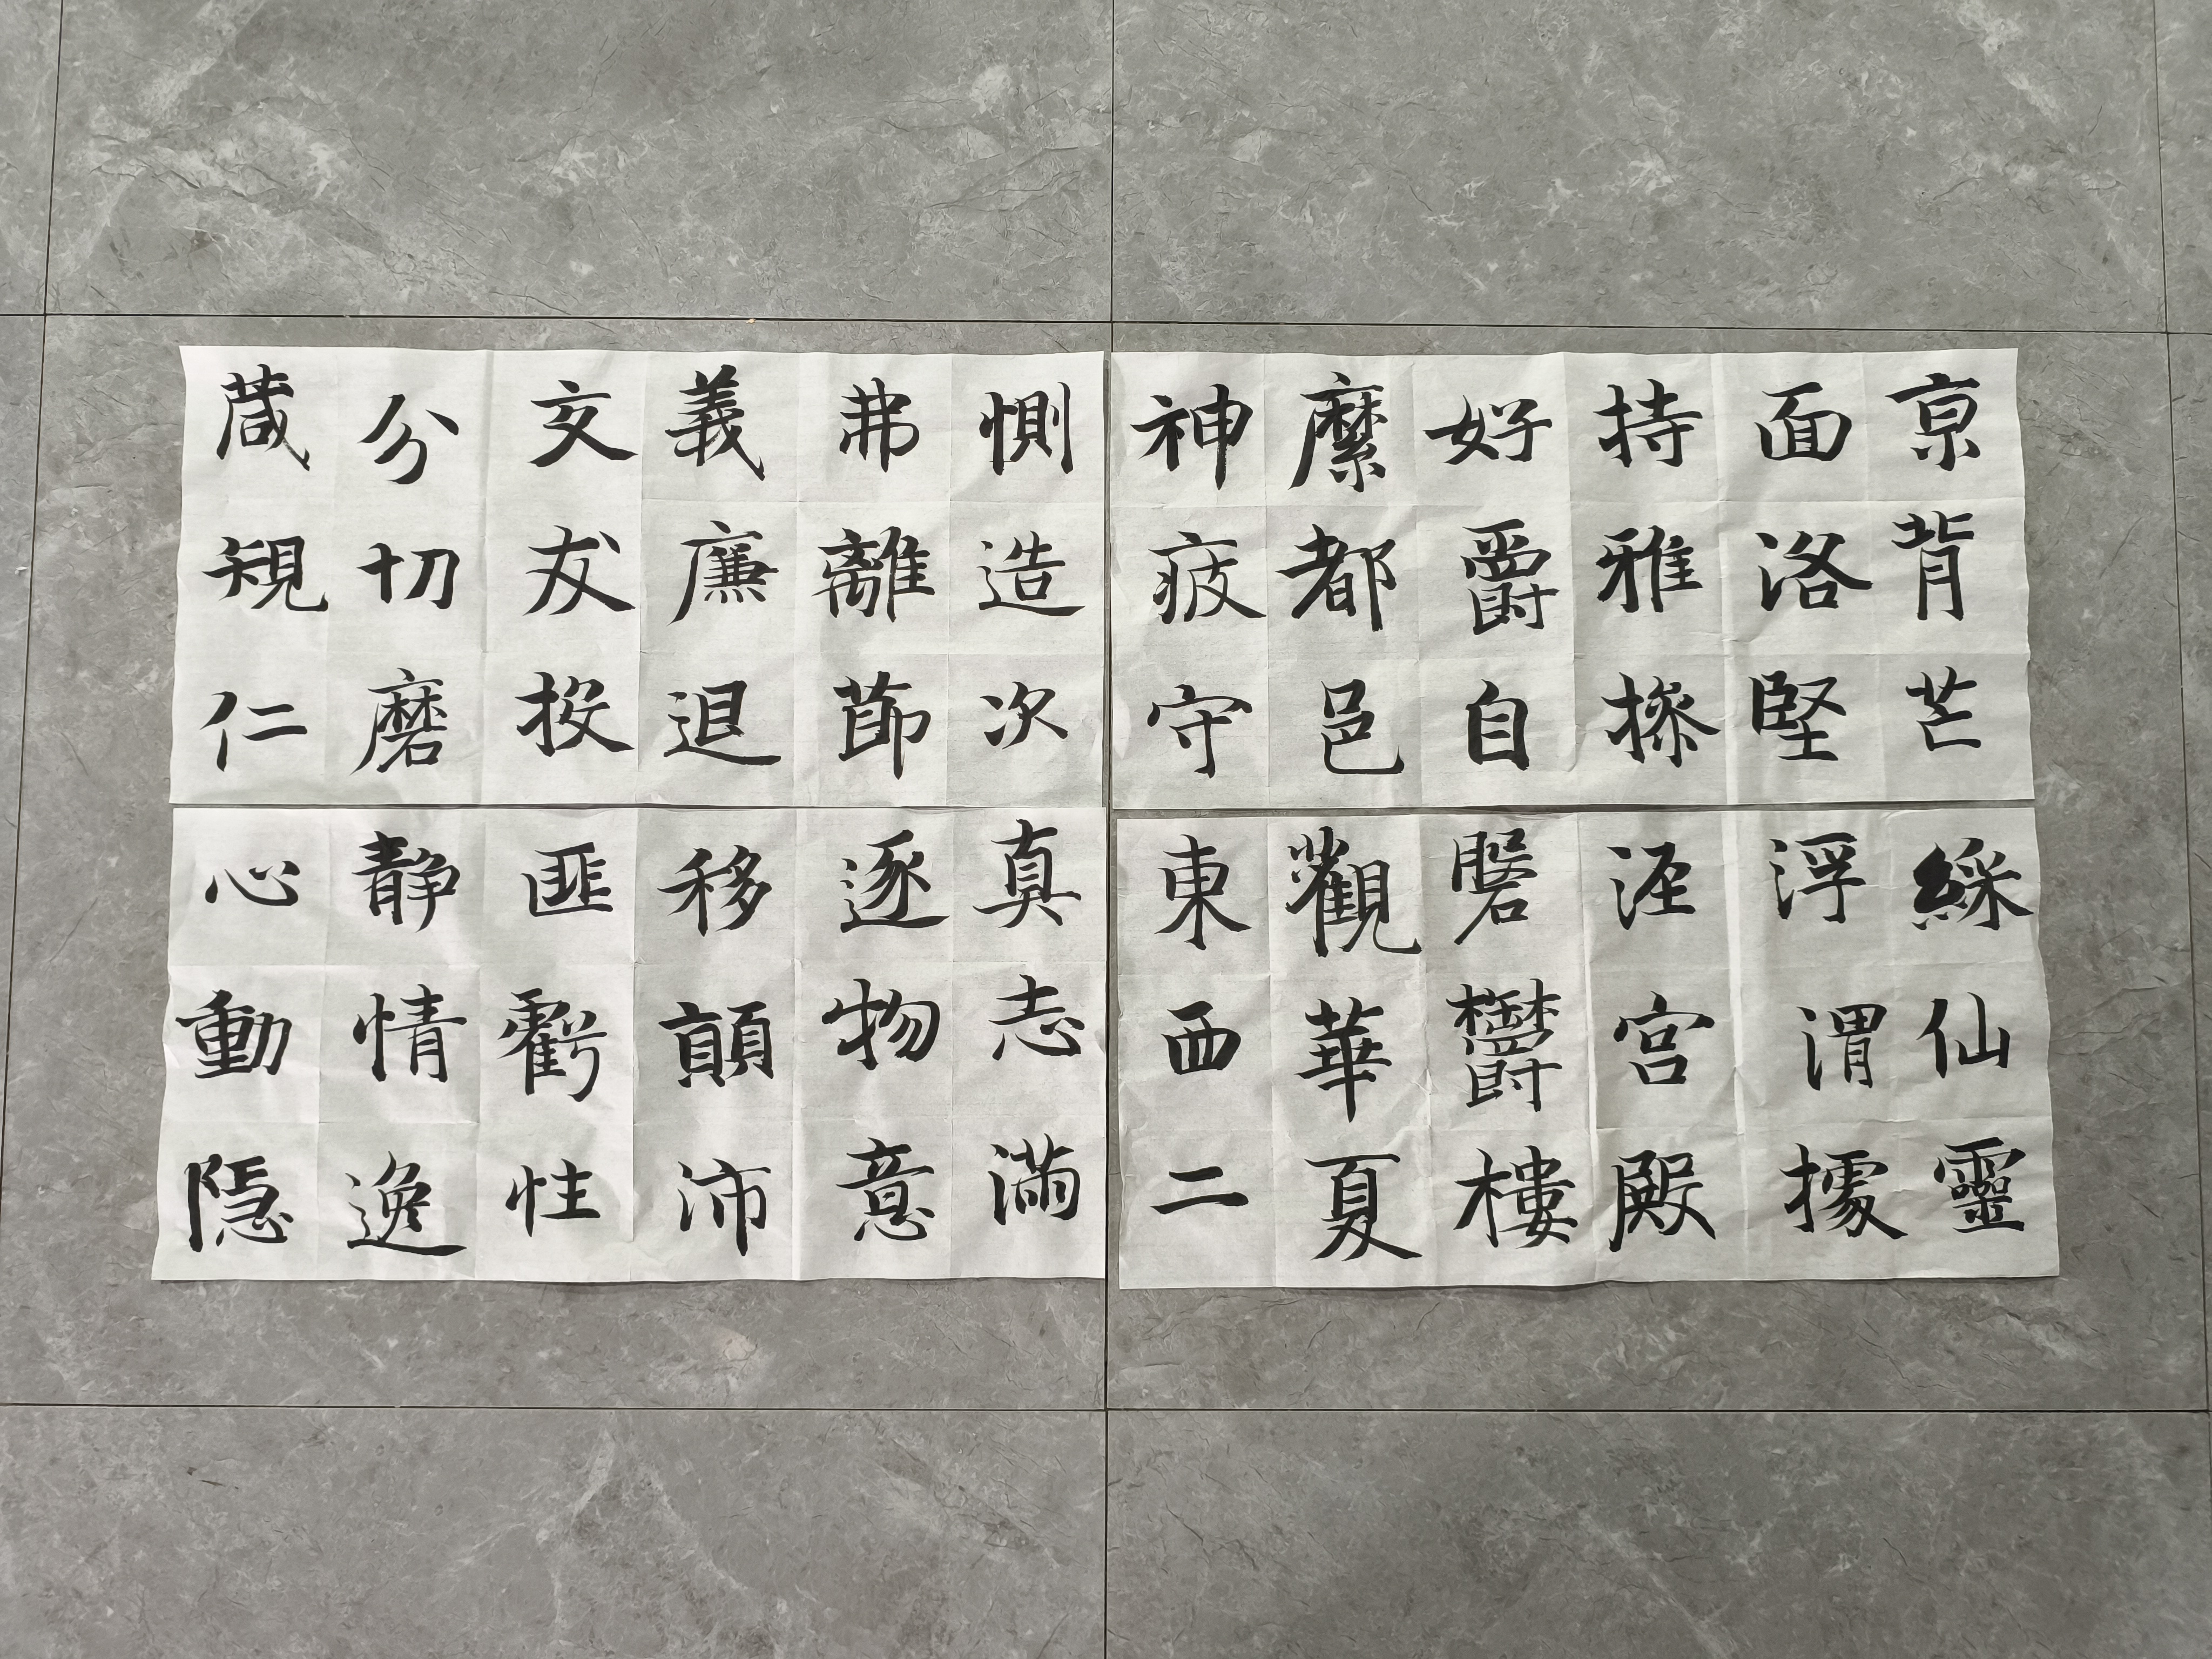 京背芒
面洛堅
持雅操
好爵自
縻都邑
神疲守
惻造次
弗離節
義廉退
交友投
分切磨
葴規仁
綵仙靈
浮渭據
涇宮殿
磐鬱樓
觀華夏
東西二
真志滿
逐物意
移顛沛
匪虧性
靜情逸
心動隱